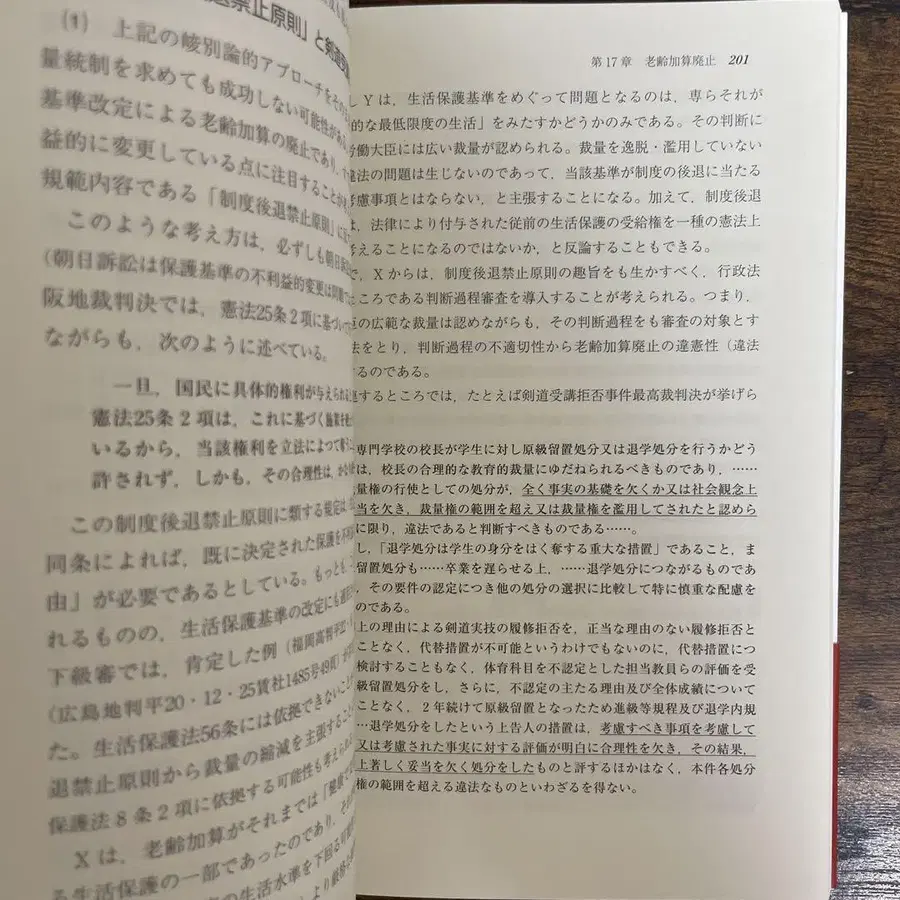 退禁止原則」と剣道受
(1) 上記の峻別論的アプローチをその
量統制を求めても成功しない可能性がある
基準改定による老齢加算の廃止であり，
益的に変更している点に注目することが
規範内容である「制度後退禁止原則」に
このような考え方は，必ずしも朝日訴訟
(朝日訴訟は保護基準の不利益的変更は問題
阪地裁判決では，憲法25条2項に基づい
ながらも，次のように述べている。
一旦，国民に具体的権利が与えられ
憲法25条2項は，これに基づく施策を
いるから，当該権利を立法によつて奪う
許されず，しかも，その合理性は，か
この制度後退禁止原則に類する規定は
同条によれば，既に決定された保護を不利
由」が必要であるとしている。もっとも，
れるものの，生活保護基準の改定にも適
下級審では，肯定した例（福岡高判平22・
（広島地判平20・12・25賃社1485号49頁）
た。生活保護法56条には依拠できないこと
退禁止原則から裁量の縮減を主張すること
保護法8条2項に依拠する可能性も考えられ
Xは，老齢加算がそれまでは「
る生活保護の一部であったのであり，
の生活水準を下回る可
第17章 老齢加算廃止 201
しYは，生活保護基準をめぐって問題となるのは，専らそれが
的な最低限度の生活」をみたすかどうかのみである。その判断に
労働大臣には広い裁量が認められる。裁量を逸脱・濫用していない
違法の問題は生じないのであって，当該基準が制度の後退に当たる
考慮事項とはならない，と主張することになる。加えて，制度後退
は，法律により付与された従前の生活保護の受給権を一種の憲法上
考えることになるのではないか，と反論することもできる。
で，Xからは，制度後退禁止原則の趣旨をも生かすべく，行政法
ところである判断過程審査を導入することが考えられる。つまり，
の広範な裁量は認めながらも，その判断過程をも審査の対象とす
法をとり，判断過程の不適切性から老齢加算廃止の違憲性（違法
するのである。
するところでは，たとえば剣道受講拒否事件最高裁判決が挙げら
専門学校の校長が学生に対し原級留置処分又は退学処分を行うかどう
は，校長の合理的な教育的裁量にゆだねられるべきものであり，……
量権の行使としての処分が，全く事実の基礎を欠くか又は社会観念上
当を欠き，裁量権の範囲を超え又は裁量権を濫用してされたと認めら
に限り，違法であると判断すべきものである……。
し，「退学処分は学生の身分をはく奪する重大な措置」であること，ま
留置処分も……卒業を遅らせる上，……退学処分につながるものであ
，その要件の認定につき他の処分の選択に比較して特に慎重な配慮を
のである。
上の理由による剣道実技の履修拒否を，正当な理由のない履修拒否と
ことなく，代替措置が不可能というわけでもないのに，代替措置につ
検討することもなく，体育科目を不認定とした担当教員らの評価を受
級留置処分をし，さらに，不認定の主たる理由及び全体成績について
ことなく，2年続けて原級留置となったため進級等規程及び退学内規
…退学処分をしたという上告人の措置は，考慮すべき事項を考慮して
又は考慮された事実に対する評価が明白に合理性を欠き，その結果，
上著しく妥当を欠く処分をしたものと評するほかはなく，本件各処分
権の範囲を超える違法なものといわざるを得ない。